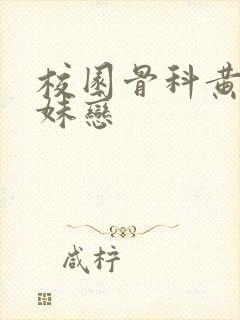 校園骨科黄
妹戀
咸柠